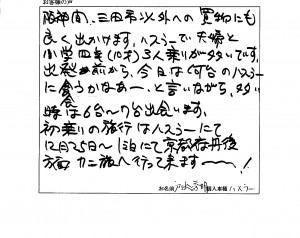 お客様の声
阪神間、三田市以外への買物にも
良く出かけます。ハスラーで夫婦と
小学四年(10才)3人乗りが多いです。
出発前から、今日は何台のハスラー
に会うかなあー、と言いながら、多い
時は6台〜7台出会います。
初乗りの旅行はハスラーにて
12月25日〜1泊にて京都府丹後
方面カニ旅へ行って来ます〜〜!
お名前 購入車種 ハスラー